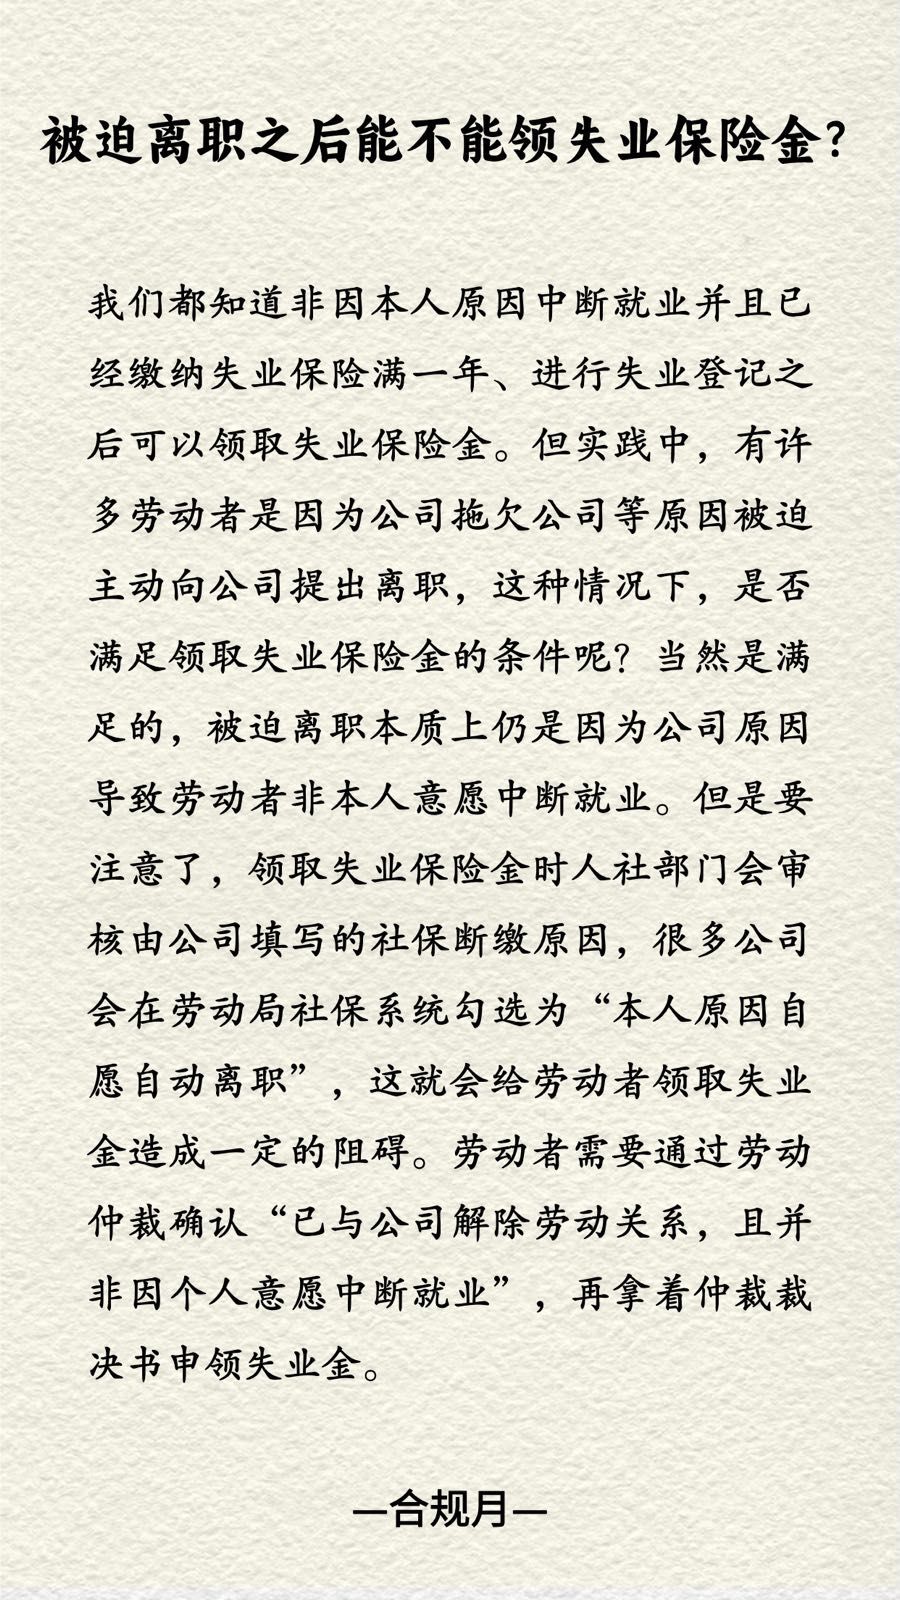 被迫离职之后能不能领失业保险金？
我们都知道非因本人原因中断就业并且已
经缴纳失业保险满一年、进行失业登记之
后可以领取失业保险金。但实践中，有许
多劳动者是因为公司拖欠公司等原因被迫
主动向公司提出离职，这种情况下，是否
满足领取失业保险金的条件呢？当然是满
足的，被迫离职本质上仍是因为公司原因
导致劳动者非本人意愿中断就业。但是要
注意了，领取失业保险金时人社部门会审
核由公司填写的社保断缴原因，很多公司
会在劳动局社保系统勾选为“本人原因自
愿自动离职”，这就会给劳动者领取失业
金造成一定的阻碍。劳动者需要通过劳动
仲裁确认“已与公司解除劳动关系，且并
非因个人意愿中断就业”，再拿着仲裁裁
决书申领失业金。
—合规月—